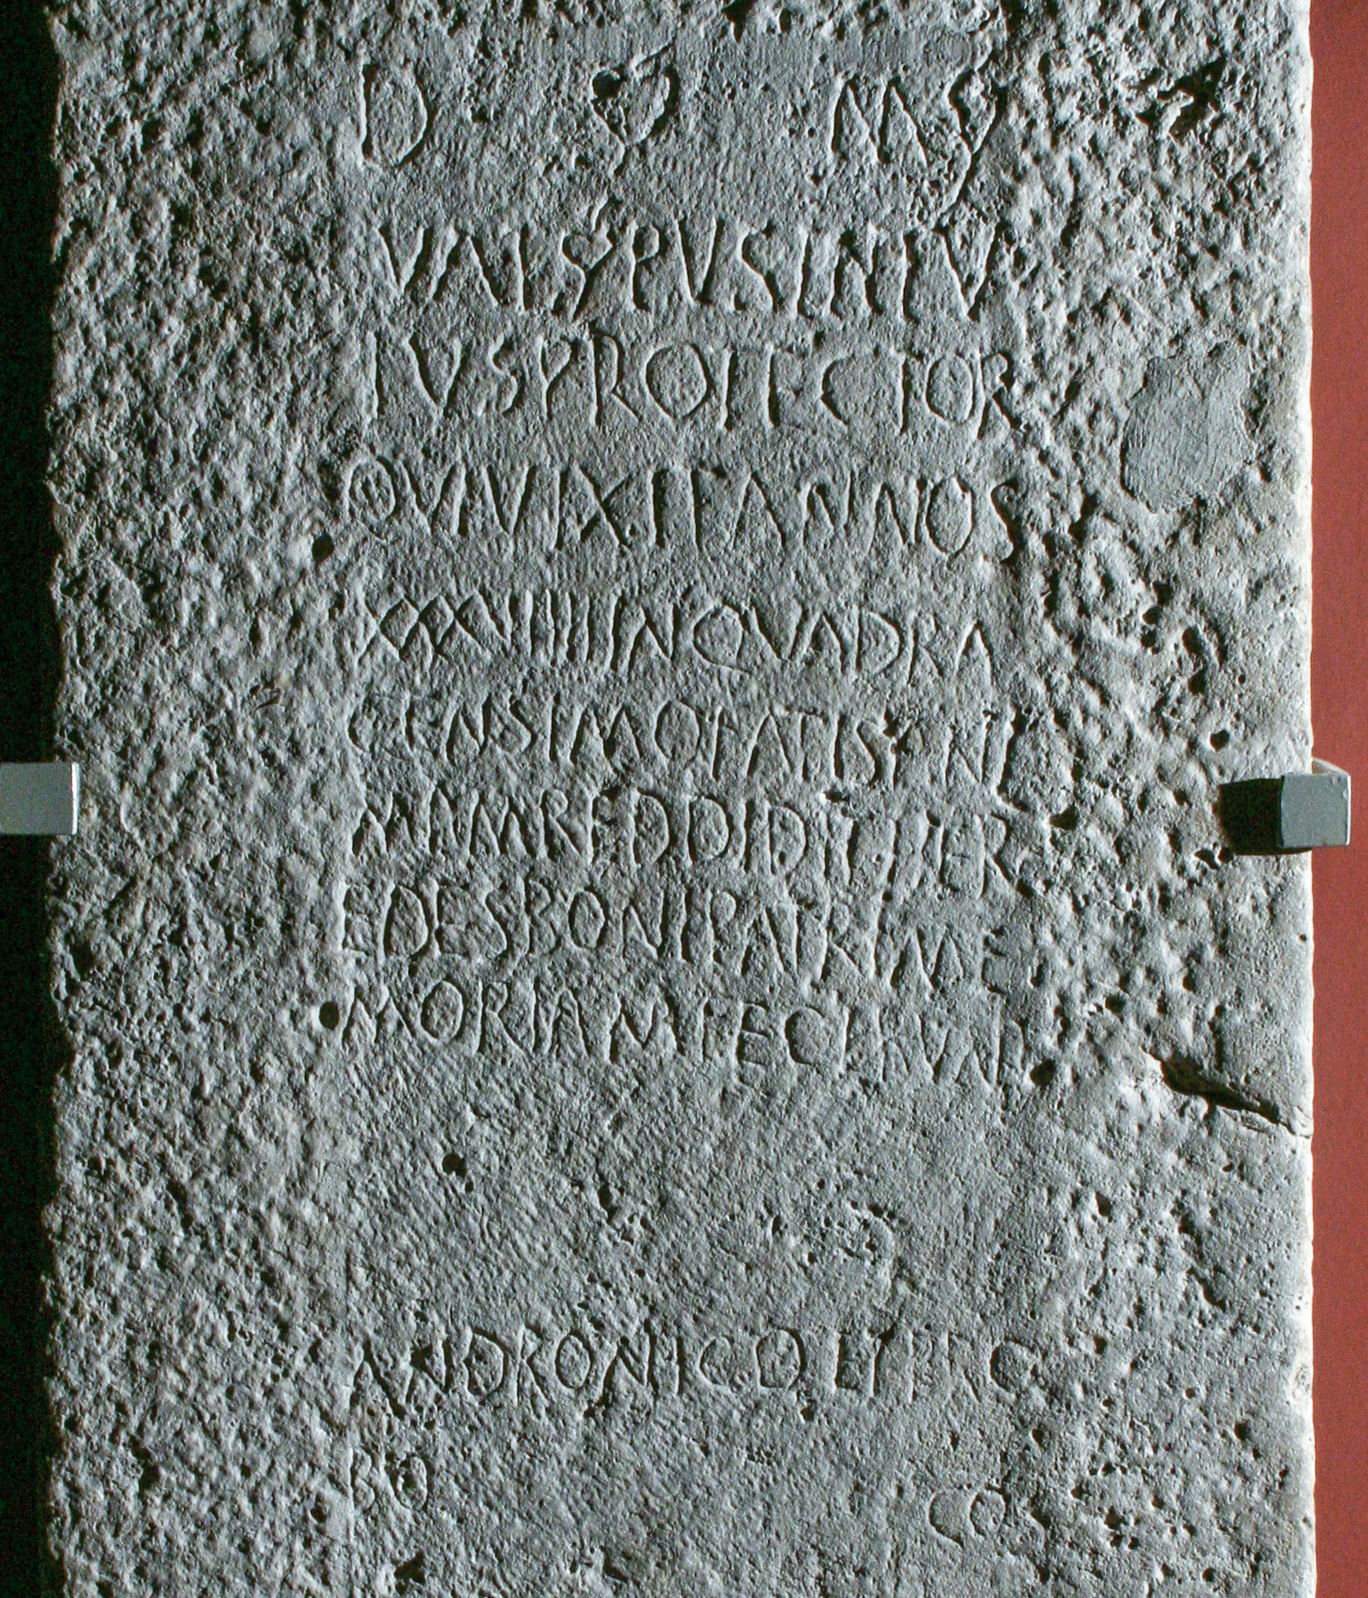 D ❦ M S
VAL SPVSINIV
IVS PROTECTOR
QVI VIXIT ANNOS
XXXVIIII IN QVADRA
GENSIMO ETATIS ANI
MAM REDDIDIT HER
EDES BONI PATRI ME
MORIAM FECERVNT
ANDRONICO